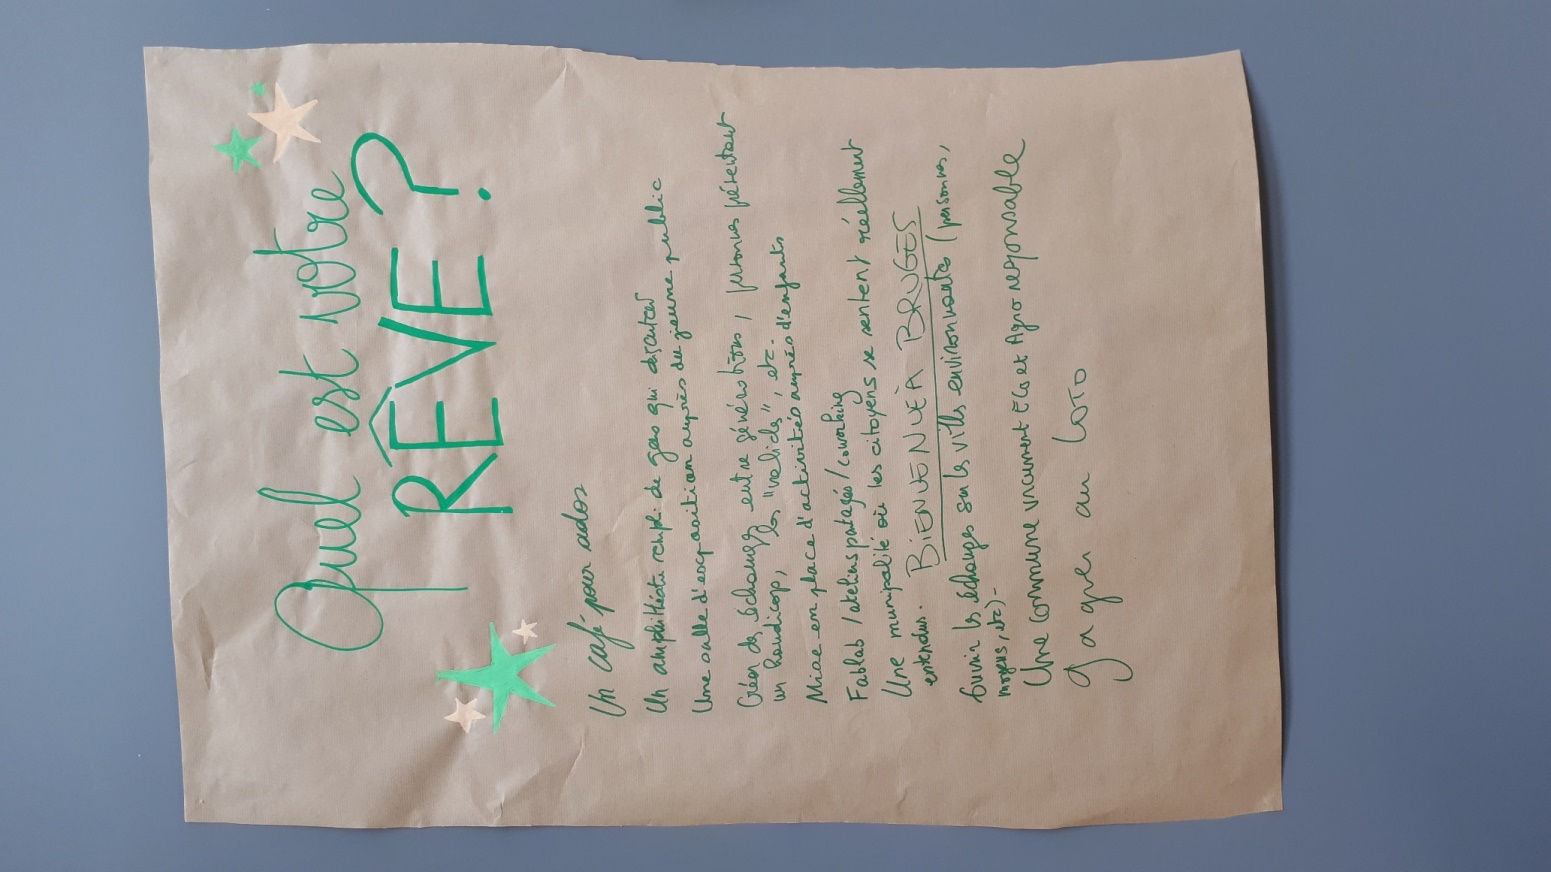 Quel est votre
RÊVE ?
Un café pour ados
Un amphithéâtre rempli de gens qui discutent
Une salle d'exposition auprès du jeune public
Créer des échanges entre générations, personnes présentant
un handicap, les "valides", etc.
Mise en place d'activités auprès d'enfants
Fablab / ateliers partagés / coworking
Une municipalité où les citoyens se sentent réellement
entendus. BIENVENUE À BRUGES
Ouvrir les échanges sur les villes environnantes (personnes,
moyens, etc)-
Une commune vraiment Eco et Agro responsable
Gagner au LOTO